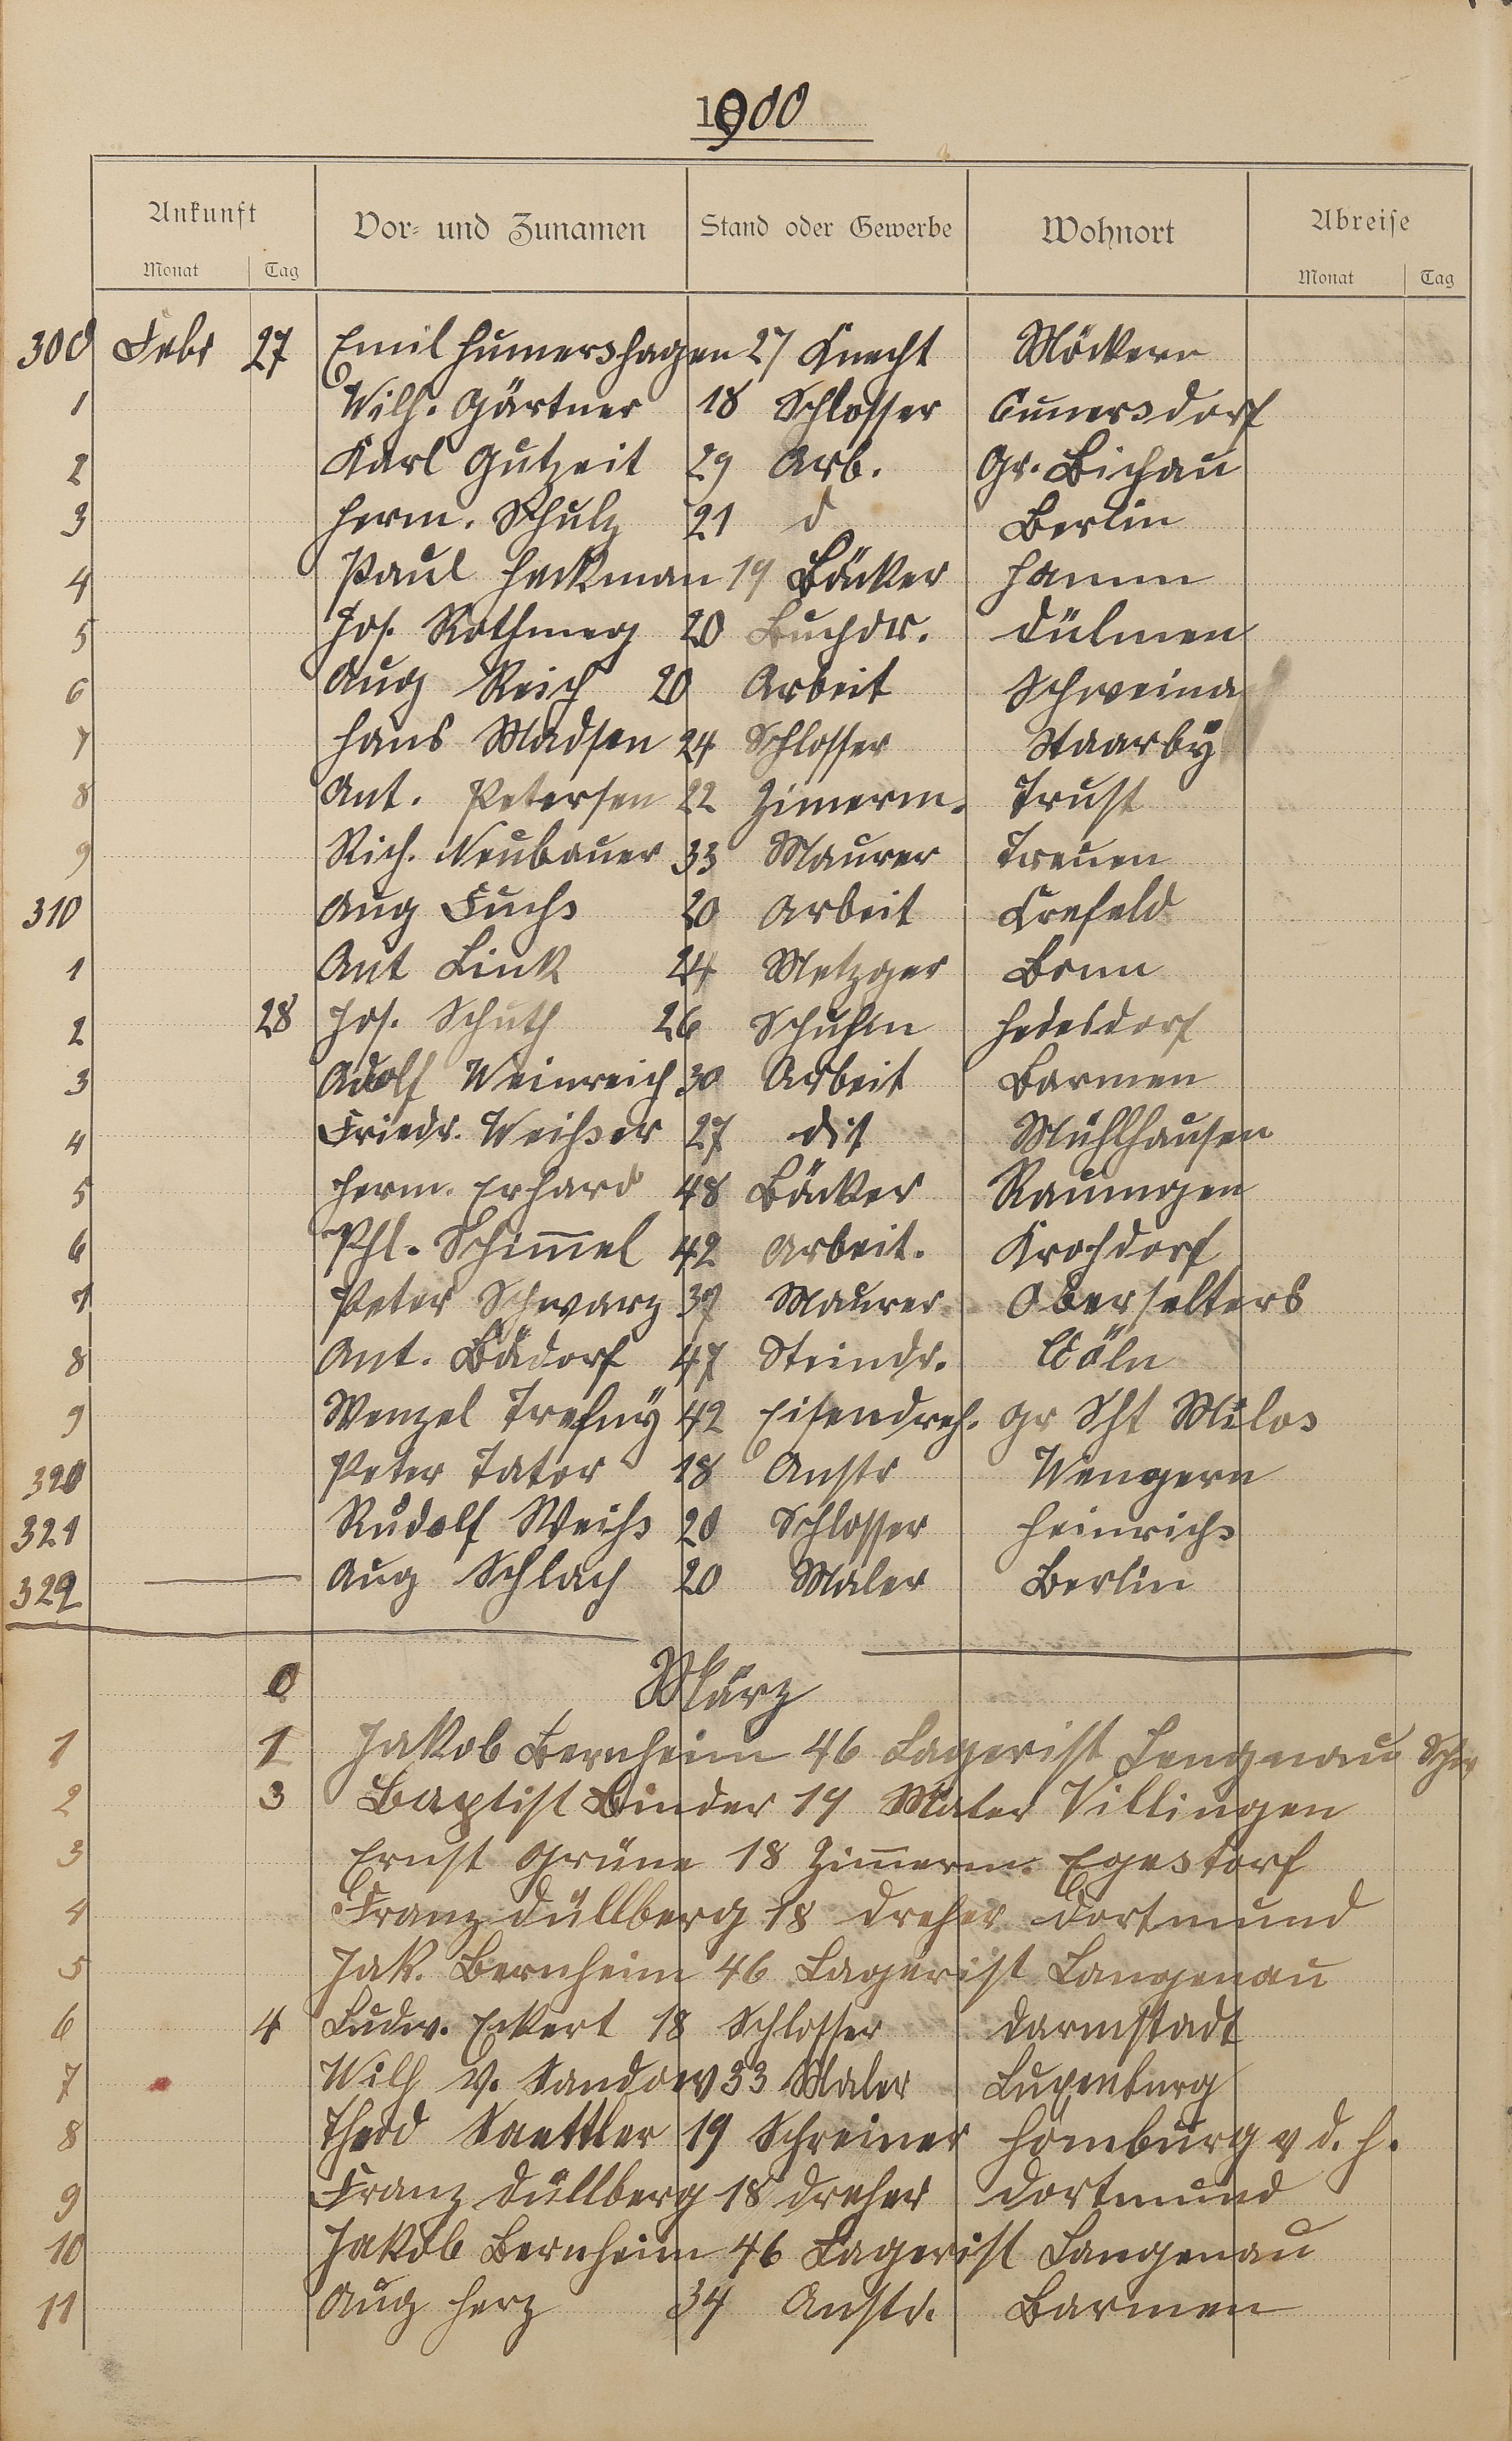 1900
Ankunft Vor- und Zunamen Stand oder Gewerbe Wohnort Abreise
Monat Tag Monat Tag
300 Febr 27 Emil Humershagen 27 Knecht Möckern
1 Wilh. Gärtner 18 Schlosser Cunersdorf
2 Karl Gutzeit 29 Arb. Gr. Bichau
3 Herm. Schulz 21 d Berlin
4 Paul Heckman 19 Bäcker Hamm
5 Jos. Rothmeg 20 Buchdr. Dülmen
6 Aug Reich 20 Arbeit Schweina
7 Hans Madsen 24 Schlosser Staarby
8 Ant. Petersen 22 Zimerm. Trust
9 Rich. Neubauer 33 Maurer Treuen
310 Aug Fuchs 20 Arbeit Crefeld
1 Ant Link 24 Metzger Bonn
2 28 Jos. Schuth 26 Schuhm Hedesdorf
3 Adolf Weinreich 30 Arbeit Barmen
4 Friedr. Weißer 27 dit Mühlhausen
5 Herm. Erhard 48 Bäcker Raumgen
6 Phl. Schim̅el 42 Arbeit. Krofdorf
7 Peter Schwarz 37 Maurer Oberselters
8 Ant. Bädorf 47 Steindr. Cöln
9 Wenzel Trefny 42 Eisendreh. Gr Skt Milos
320 Peter Tator 18 Anstr Wengern
321 Rudolf Weiß 20 Schlosser Heinrichs
322 Aug Schlach 20 Maler Berlin
0 März
1 1 Jakob Bernheim 46 Lagerist Lengnau Schw
2 3 Baptist Binder 19 Maler Villingen
3 Ernst Grüne 18 Zim̅erm. Egestorf
4 Franz Düllberg 18 Dreher Dortmund
5 Jak. Bernheim 46 Lagerist Langenau
6 4 Ludw. Eckert 18 Schlosser Darmstadt
7 Wilh v. Sandow 33 Maler Luxenburg
8 Theod Saettler 19 Schreiner Homburg v d. H.
9 Franz Düllberg 18 Dreher Dortmund
10 Jakob Bernheim 46 Lagerist Langenau
11 Aug Herz 34 Anstr. Barmen